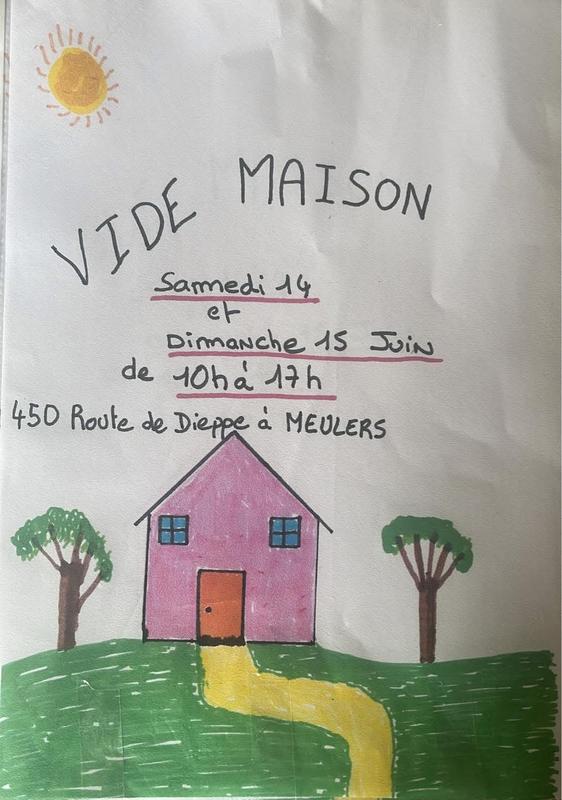 VIDE MAISON
Samedi 14
et
Dimanche 15 Juin
de 10h à 17h
450 Route de Dieppe à MEULERS